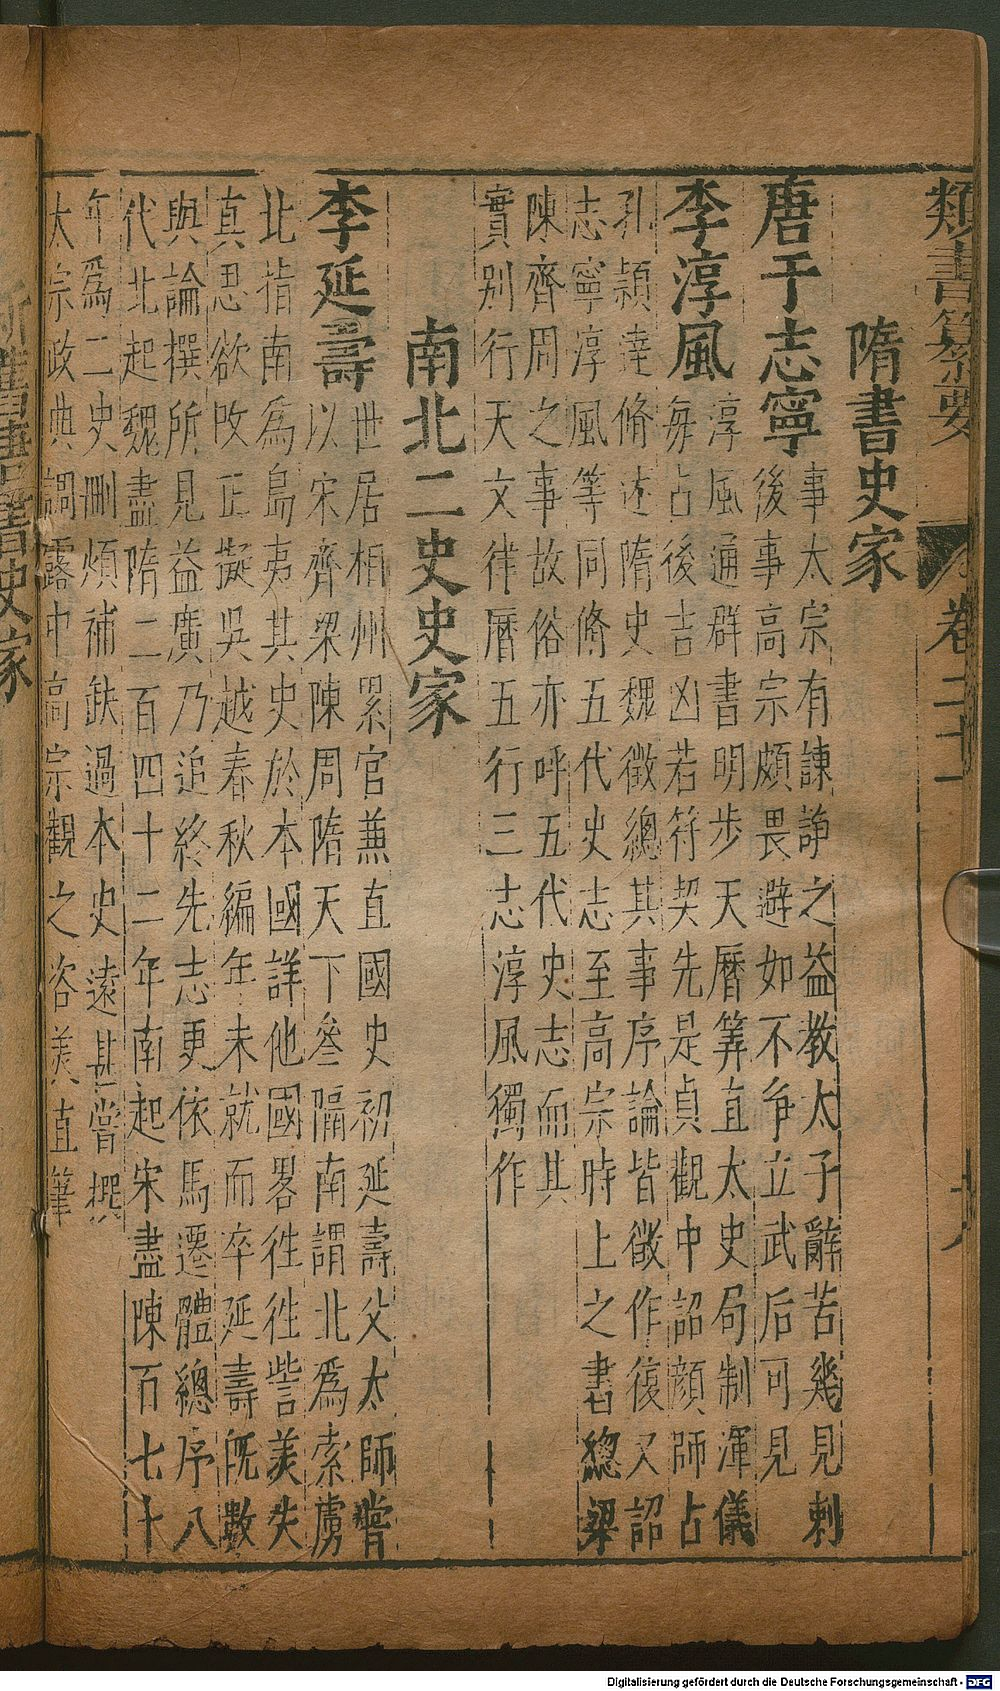 類書纂要
卷二十一
隋書史家
唐于志寧 事太宗有諫諍之益教太子辭苦幾見刺
後事高宗頗畏避如不争立武后可見
李淳風 淳風通群書明步天曆筭直太史局制渾儀
每占後吉凶若符契先是貞觀中詔顔師占
孔頴達脩述隋史魏徵總其事序論皆徵作復又詔
志寧淳風等同脩五代史志至高宗時上之書總梁
陳齊周之事故俗亦呼五代史志而其
實别行天文律曆五行三志淳風獨作
南北二史史家
李延壽 世居相州累官兼直國史初延壽父太師嘗
以宋齊梁陳周隋天下叅隔南謂北爲索虜
北指南為島夷其史於本國詳他國畧徃徃訾美失
真思欲攺正擬吳越春秋編年未就而卒延壽旣數
與論撰所見益廣乃追終先志更依馬遷體總序八
代北起魏盡隋二百四十二年南起宋盡陳百七十
年爲二史刪煩補缺過本史遠甚嘗撰
太宗政典調露中高宗觀之咨美直筆
Digitalisierung gefördert durch die Deutsche Forschungsgemeinschaft - DFG